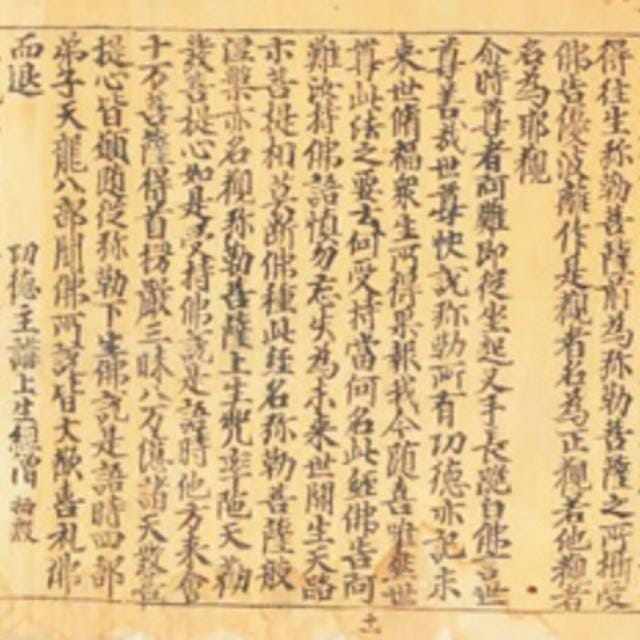 得往生弥勒菩薩前為弥勒菩薩之所攝受
佛告優波離作是觀者名為正觀若他觀者
名為耶觀
尒時尊者阿難即從坐起叉手長跪白佛言世
尊善哉世尊快說弥勒所有功德亦記未
来世脩福衆生所得果報我今随喜唯然世
尊此法之要云何受持當何名此經佛告阿
難汝持佛語慎勿忘失為未来世開生天路
示菩提相莫斷佛種此經名弥勒菩薩般
涅槃亦名觀弥勒菩薩上生兜率陁天勸
發菩提心如是受持佛說是語時他方来會
十万菩薩得首楞嚴三昧八万億諸天發菩
提心皆願随從弥勒下生佛說是語時四部
弟子天龍八部聞佛所說皆大歡喜礼佛
而退
功德主講上生經僧